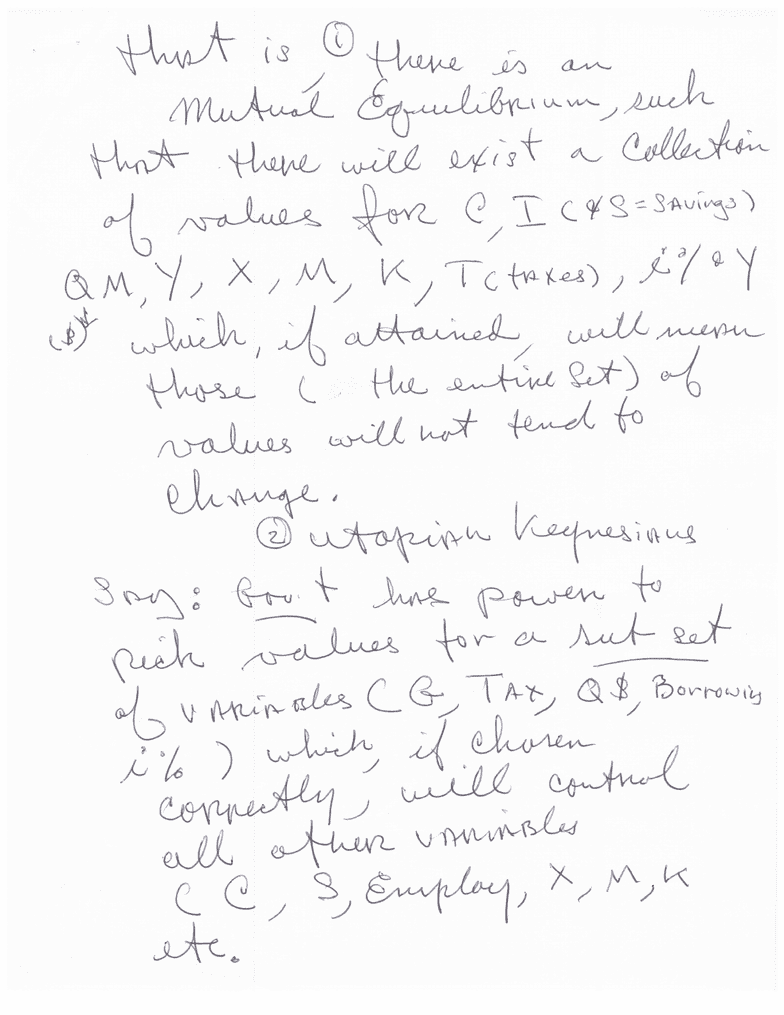 that is, ① there is an
Mutual Equilibrium, such
that there will exist a Collection
of values for C, I (& S = SAvings)
QM, Y, X, M, K, T (tAxes), i% & Y
($) which, if attained, will mean
those ( the entire Set) of
values will not tend to
change.
② Utopian Keynesians
SAy: Gov't has power to
pick values for a sub set
of vARiAbles ( G, TAx, Q$, Borrowing
i% ) which, if chosen
correctly, will control
all other vARiAbles
( C, S, Employ, X, M, K
etc.